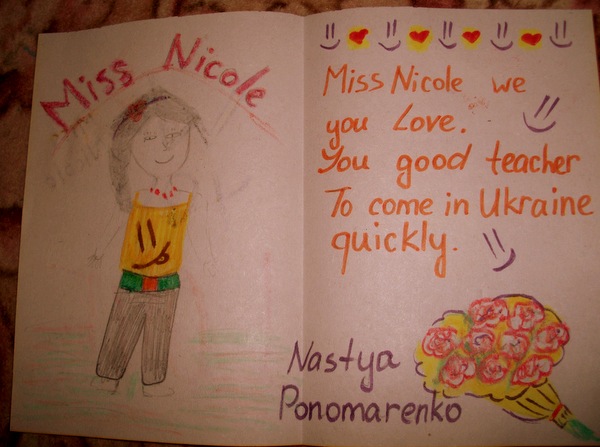 Miss Nicole
Miss Nicole we
you Love.
You good teacher
To come in Ukraine
quickly.
Nastya
Ponomarenko